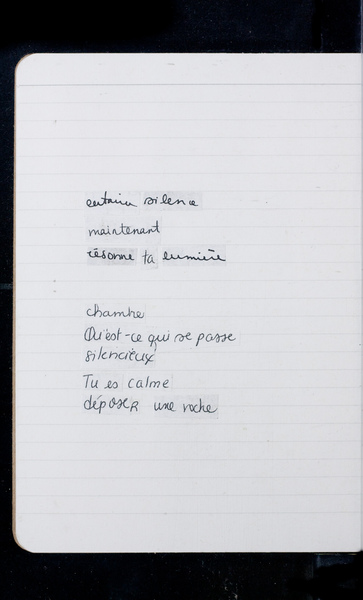 certain silence
maintenant
résonne ta lumière
chambre
Qu'est-ce qui se passe
silencieux
Tu es calme
déposer une roche